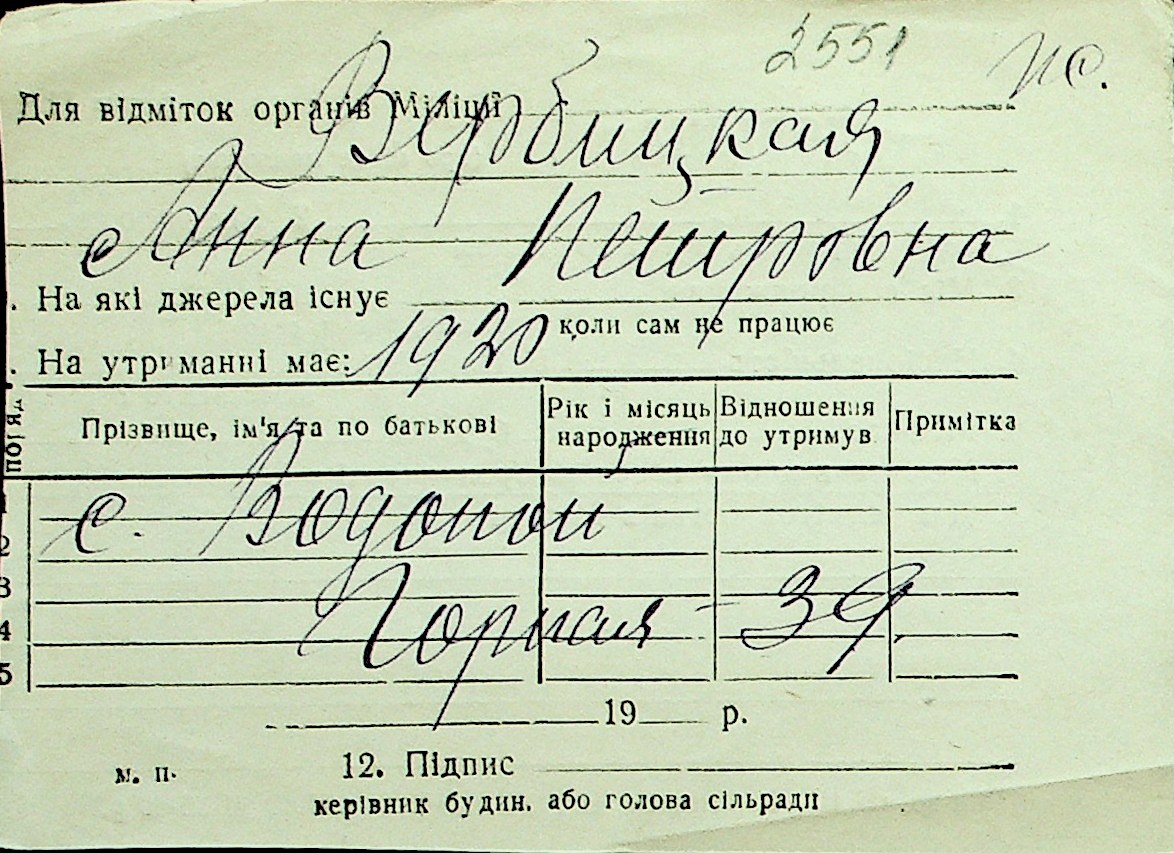 2551
Для відміток органів Міліції
Вербицкая
Анна Петровна
. На які джерела існує
коли сам не працює
. На утриманні має:
1920
Прізвище, ім'я та по батькові
Рік і місяць народження
Відношення до утримув
Примітка
с. Водопой
2
3
Горная - 39
4
5
19 р.
м. п.
12. Підпис
керівник будин. або голова сільради